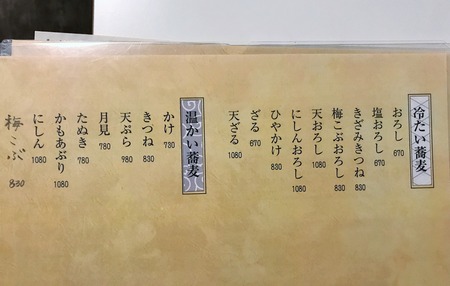 冷たい蕎麦
おろし 670
塩おろし 670
きざみきつね 830
梅こぶおろし 830
天おろし 1080
にしんおろし 1080
ひやかけ 830
ざる 670
天ざる 1080
温かい蕎麦
かけ 730
きつね 830
天ぷら 980
月見 780
たぬき 780
かもあぶり 1080
にしん 1080
梅こぶ 830